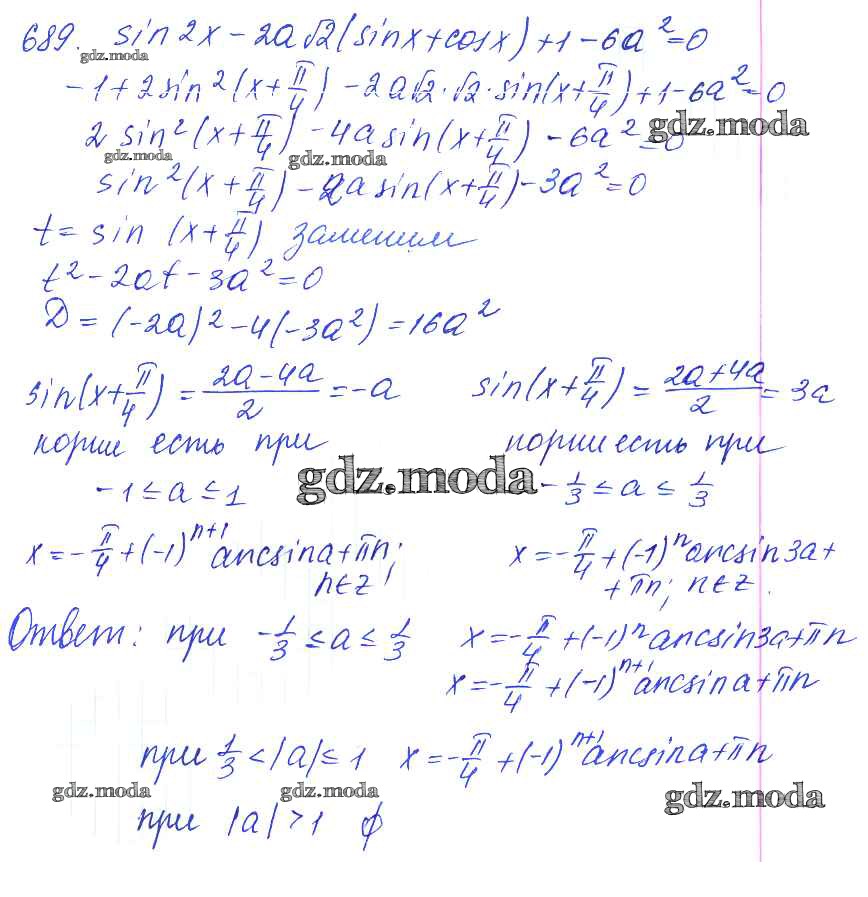 689. sin2x - 2a√2(sinx + cosx) + 1 - 6a² = 0
gdz.moda
-1 + 2sin²(x + π/4) - 2a√2·√2·sin(x + π/4) + 1 - 6a² = 0
2 sin²(x + π/4) - 4a sin(x + π/4) - 6a² = 0
gdz.moda
gdz.moda
gdz.moda
sin²(x + π/4) - 2a sin(x + π/4) - 3a² = 0
t = sin (x + π/4) заменим
t² - 2at - 3a² = 0
D = (-2a)² - 4(-3a²) = 16a²
sin(x + π/4) = (2a - 4a)/2 = -a
корни есть при
-1 ≤ a ≤ 1
x = -π/4 + (-1)ⁿ⁺¹ arcsina + πn;
n∈z
sin(x + π/4) = (2a + 4a)/2 = 3a
корни есть при
-1/3 ≤ a ≤ 1/3
x = -π/4 + (-1)ⁿ arcsin3a +
+ πn; n∈z.
gdz.moda
Ответ: при -1/3 ≤ a ≤ 1/3 x = -π/4 + (-1)ⁿ arcsin3a + πn
x = -π/4 + (-1)ⁿ⁺¹ arcsina + πn
при 1/3 < |a| ≤ 1 x = -π/4 + (-1)ⁿ⁺¹ arcsina + πn
gdz.moda
gdz.moda
gdz.moda
при |a| > 1 ∅